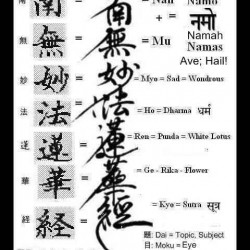 南 南 = 南 = Nan Namo
+ = नमो
無 無 = 無 = Mu Namah
Namas
Ave; Hail!
妙 妙 = 妙 = Myo = Sad = Wondrous
法 法 = 法 = Ho = Dharma धर्म
蓮 蓮 = 蓮 = Ren = Punda = White Lotus
華 華 = 華 = Ge - Rika - Flower
経 経 = 經 = Kyo = Sutra सूत्र
題: Dai = Topic, Subject
目: Moku = Eye